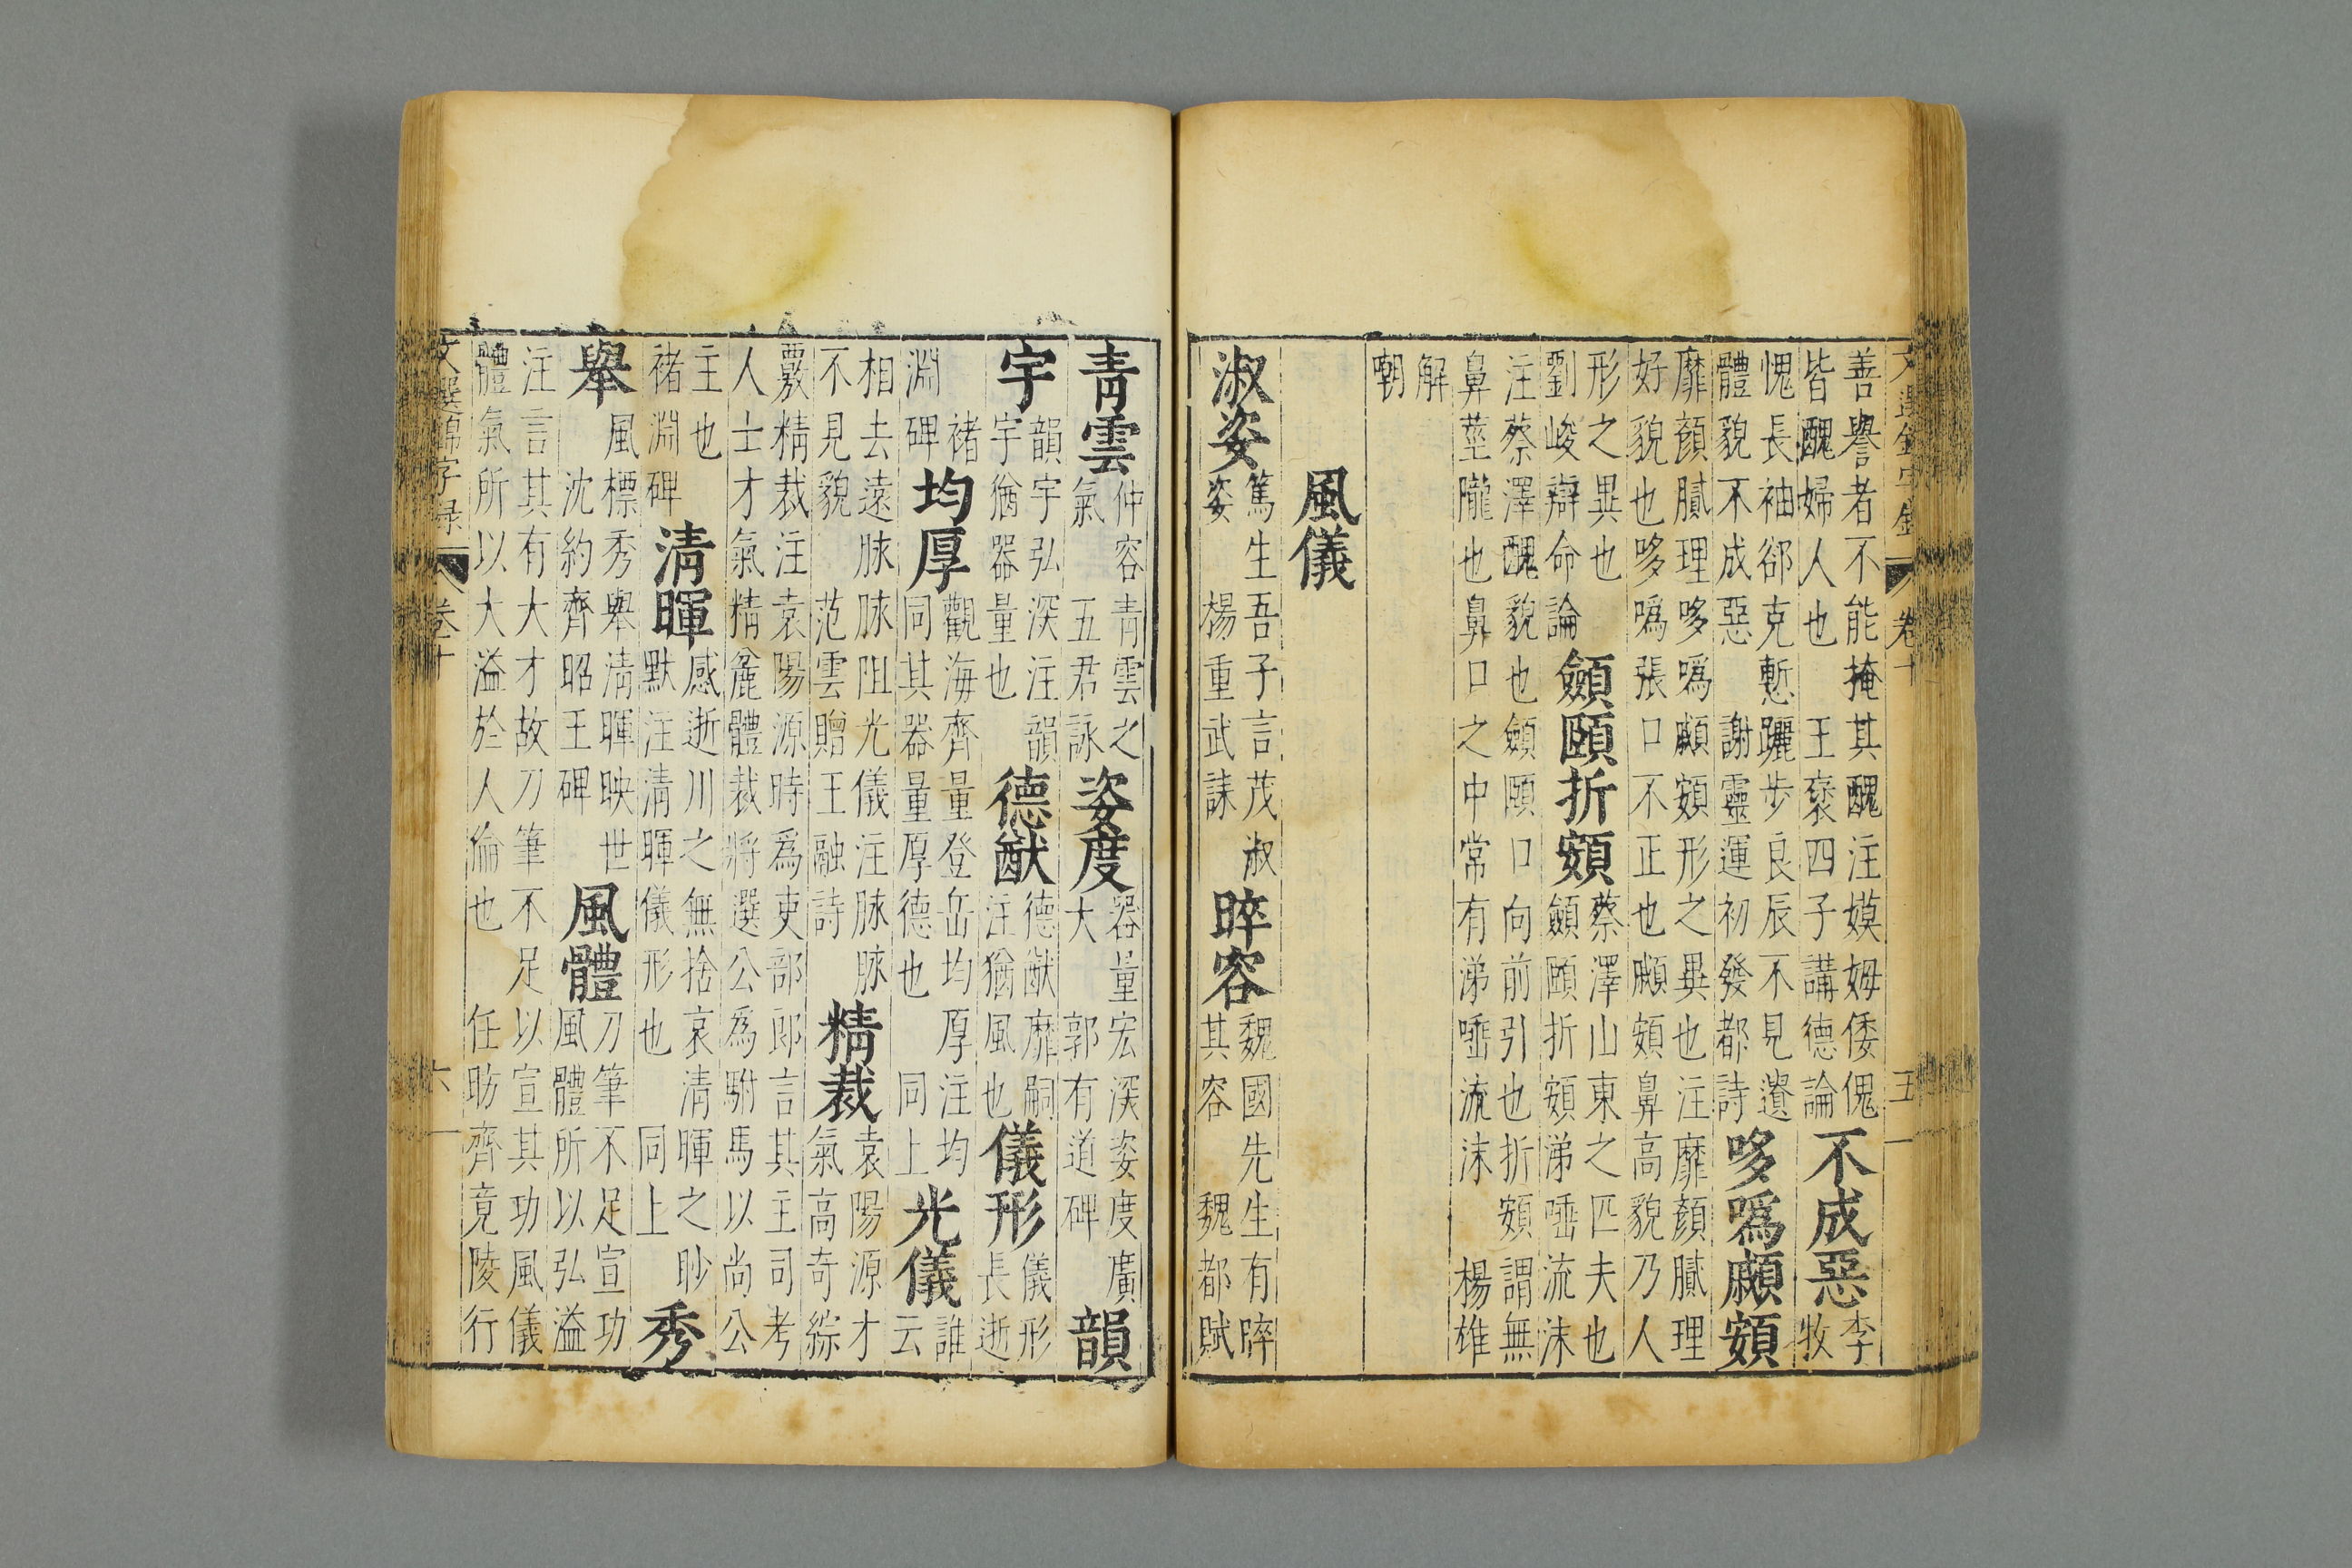 文選錦字錄 卷十 五
善譽者不能掩其醜注嫫姆倭傀
皆醜婦人也 王褒四子講德論
不成惡
李
牧
愧長袖郤克慙躧步良辰不見遺
體貌不成惡 謝靈運初發都詩
哆噅䫜頞
靡顏膩理哆噅䫜頞形之異也注靡顏膩理
好貌也哆噅張口不正也䫜頞鼻高貌乃人
形之異也
劉峻辯命論
顩頤折頞
蔡澤山東之匹夫也
顩頤折頞涕唾流沫
注蔡澤醜貌也顩頤口向前引也折頞謂無
鼻莖隴也鼻口之中常有涕唾流沫 楊雄
解
嘲
風儀
淑姿
篤生吾子言茂淑
姿 楊重武誄
睟容
魏國先生有睟
其容 魏都賦
青雲
仲容青雲之
氣 五君詠
姿度
器量宏深姿度廣
大 郭有道碑
韻
宇
韻宇弘深注韻
宇猶器量也
德猷
德猷靡嗣
注猶風也
儀形
儀形
長逝
褚
淵碑
均厚
觀海齊量登岳均厚注均
同其器量厚德也 同上
光儀
誰
云
相去遠脉脉阻光儀注脉脉
不見貌 范雲贈王融詩
精裁
袁陽源才
氣高奇綜
覈精裁注袁陽源時爲吏部郎言其主司考
人士才氣精麄體裁將選公爲駙馬以尚公
主也
褚淵碑
清暉
感逝川之無捨哀清暉之眇
默注清暉儀形也 同上
秀
舉
風標秀舉清暉映世
沈約齊昭王碑
風體
刀筆不足宣功
風體所以弘溢
注言其有大才故刀筆不足以宣其功風儀
體氣所以大溢於人倫也 任昉齊竟陵行
文選錦字錄 卷十 六